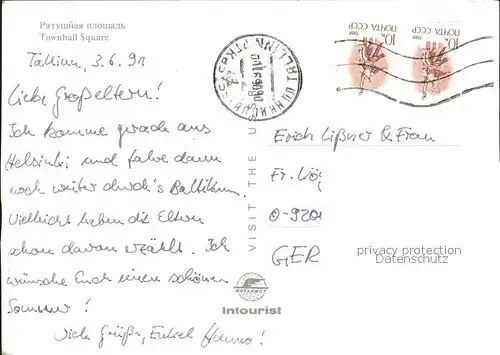 Ратушная площадь
Townhall Square
Tallinn, 3.6.91
Liebe Großeltern!
Ich komme gerade aus
Helsinki und fahre dann
noch weiter durch's Baltikum.
Vielleicht haben die Eltern
schon davon erzählt. Ich
wünsche Euch einen schönen
Sommer!
Viele Grüße, Enkel Hanno!
VISIT THE U
ИНТУРИСТ
Intourist
10к ПОЧТА СССР 1988
10к ПОЧТА СССР 1988
TALLINN
Erich Lißner & Frau
Fr.
O-920
GER
privacy protection
Datenschutz